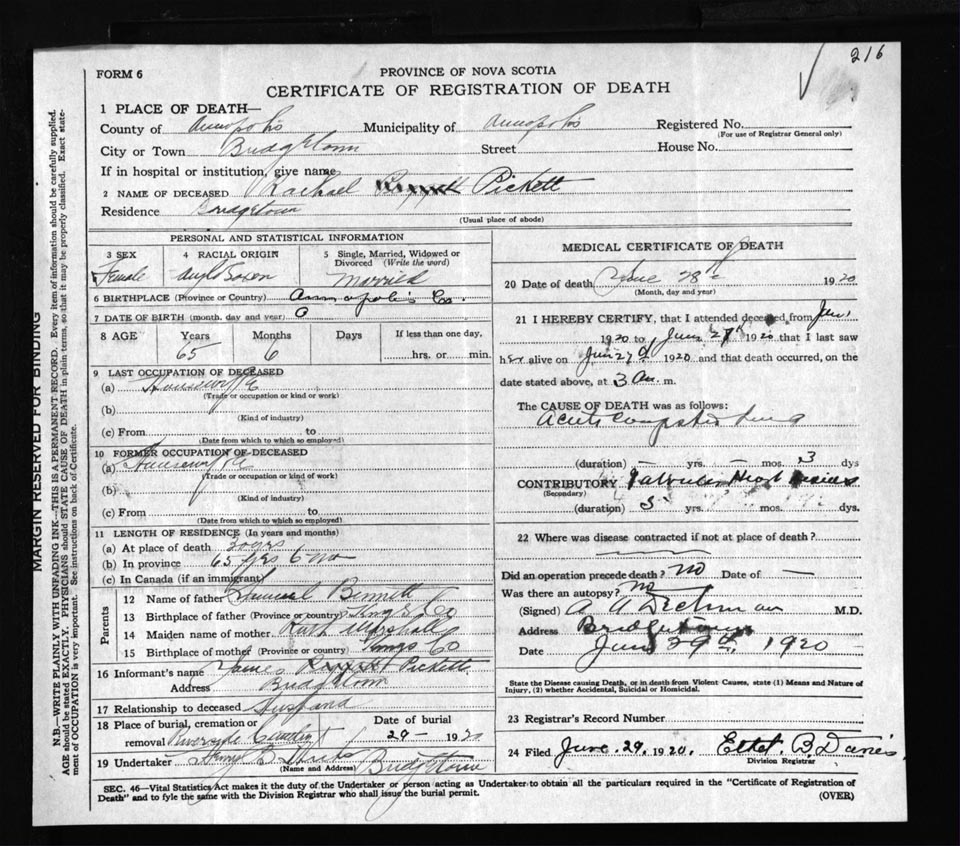 216
FORM 6
PROVINCE OF NOVA SCOTIA
CERTIFICATE OF REGISTRATION OF DEATH
1 PLACE OF DEATH—
County of Annapolis Municipality of Annapolis Registered No.
(For use of Registrar General only)
City or Town Bridgetown Street House No.
If in hospital or institution, give name
2 NAME OF DECEASED Rachael Pickett
Residence Bridgetown
(Usual place of abode)
PERSONAL AND STATISTICAL INFORMATION
3 SEX 4 RACIAL ORIGIN 5 Single, Married, Widowed or Divorced (Write the word)
Female Anglo Saxon Married
6 BIRTHPLACE (Province or Country) Annapolis Co.
7 DATE OF BIRTH (month, day and year)
8 AGE Years Months Days If less than one day,
65 6 hrs. or min.
9 LAST OCCUPATION OF DECEASED
(a) Housewife
(Trade or occupation or kind of work)
(b)
(Kind of industry)
(c) From to
(Date from which to which so employed)
10 FORMER OCCUPATION OF DECEASED
(a) Housewife
(Trade or occupation or kind of work)
(b)
(Kind of industry)
(c) From to
(Date from which to which so employed)
11 LENGTH OF RESIDENCE (In years and months)
(a) At place of death 30 yrs
(b) In province 65 yrs 6 mo
(c) In Canada (if an immigrant)
Parents
12 Name of father Samuel Bennett
13 Birthplace of father (Province or country) Kings Co
14 Maiden name of mother Ruth Marshall
15 Birthplace of mother (Province or country) Kings Co
16 Informant's name James Pickett
Address Bridgetown
17 Relationship to deceased Husband
18 Place of burial, cremation or removal Riverside Date of burial
29 - 1920
19 Undertaker Bridgetown
(Name and Address)
MEDICAL CERTIFICATE OF DEATH
20 Date of death June 28 1920
(Month, day and year)
21 I HEREBY CERTIFY, that I attended deceased from
1920 to June 27 1920 that I last saw
her alive on June 27 1920 and that death occurred, on the
date stated above, at 3 a. m.
The CAUSE OF DEATH was as follows:
Acute
(duration) — yrs. — mos. 3 dys
CONTRIBUTORY Valvular Heart
(Secondary)
(duration) yrs. mos. dys.
22 Where was disease contracted if not at place of death?
Did an operation precede death? No Date of —
Was there an autopsy? No
(Signed) M.D.
Address Bridgetown
Date June 29th, 1920
State the Disease causing Death, or in death from Violent Causes, state (1) Means and Nature of
Injury, (2) whether Accidental, Suicidal or Homicidal.
23 Registrar's Record Number
24 Filed June. 29. 1920.
Division Registrar
SEC. 46—Vital Statistics Act makes it the duty of the Undertaker or person acting as Undertaker to obtain all the particulars required in the "Certificate of Registration of
Death" and to fyle the same with the Division Registrar who shall issue the burial permit.
(OVER)
MARGIN RESERVED FOR BINDING
N.B.—WRITE PLAINLY WITH UNFADING INK—THIS IS A PERMANENT RECORD. Every item of information should be carefully supplied.
AGE should be stated EXACTLY. PHYSICIANS should STATE CAUSE OF DEATH in plain terms, so that it may be properly classified. Exact state-
ment of OCCUPATION is very important. See instructions on back of Certificate.